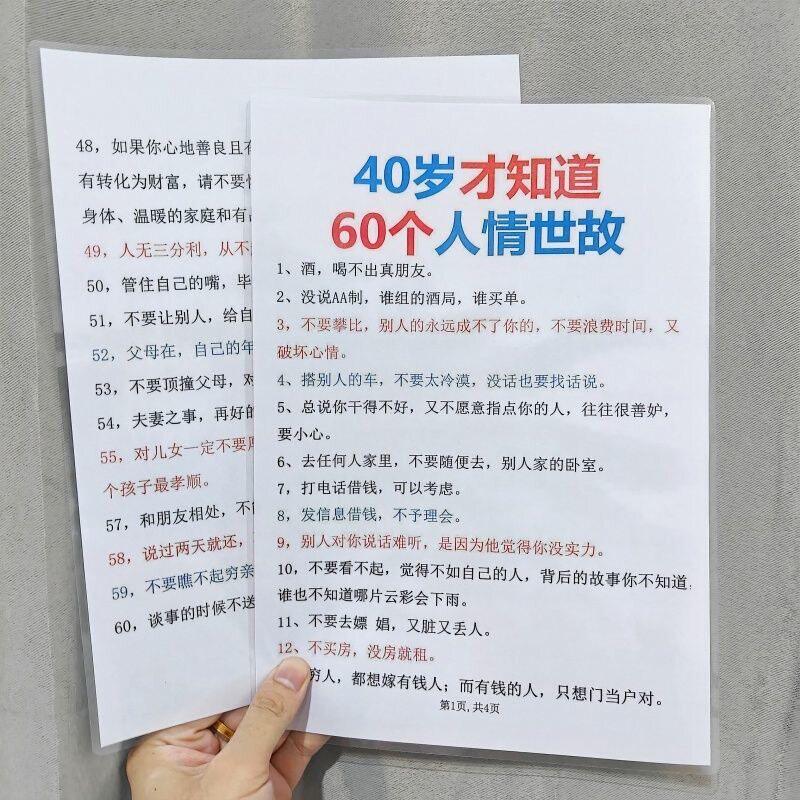 48，如果你心地善良且
有转化为财富，请不要
身体、温暖的家庭和有
49，人无三分利，从不
50，管住自己的嘴，
51，不要让别人，给自
52，父母在，自己的年
53，不要顶撞父母，对
54，夫妻之事，再好的
55，对儿女一定不要
个孩子最孝顺。
57，和朋友相处，不
58，说过两天就还，
59，不要瞧不起穷亲
60，谈事的时候不送
40岁才知道
60个人情世故
1、酒，喝不出真朋友。
2、没说AA制，谁组的酒局，谁买单。
3，不要攀比，别人的永远成不了你的，不要浪费时间，又
破坏心情。
4、搭别人的车，不要太冷漠，没话也要找话说。
5、总说你干得不好，又不愿意指点你的人，往往很善妒，
要小心。
6、去任何人家里，不要随便去，别人家的卧室。
7，打电话借钱，可以考虑。
8，发信息借钱，不予理会。
9，别人对你说话难听，是因为他觉得你没实力。
10，不要看不起，觉得不如自己的人，背后的故事你不知道，
谁也不知道哪片云彩会下雨。
11、不要去嫖 娼，又脏又丢人。
12、不买房，没房就租。
穷人，都想嫁有钱人；而有钱的人，只想门当户对。
第1页，共4页